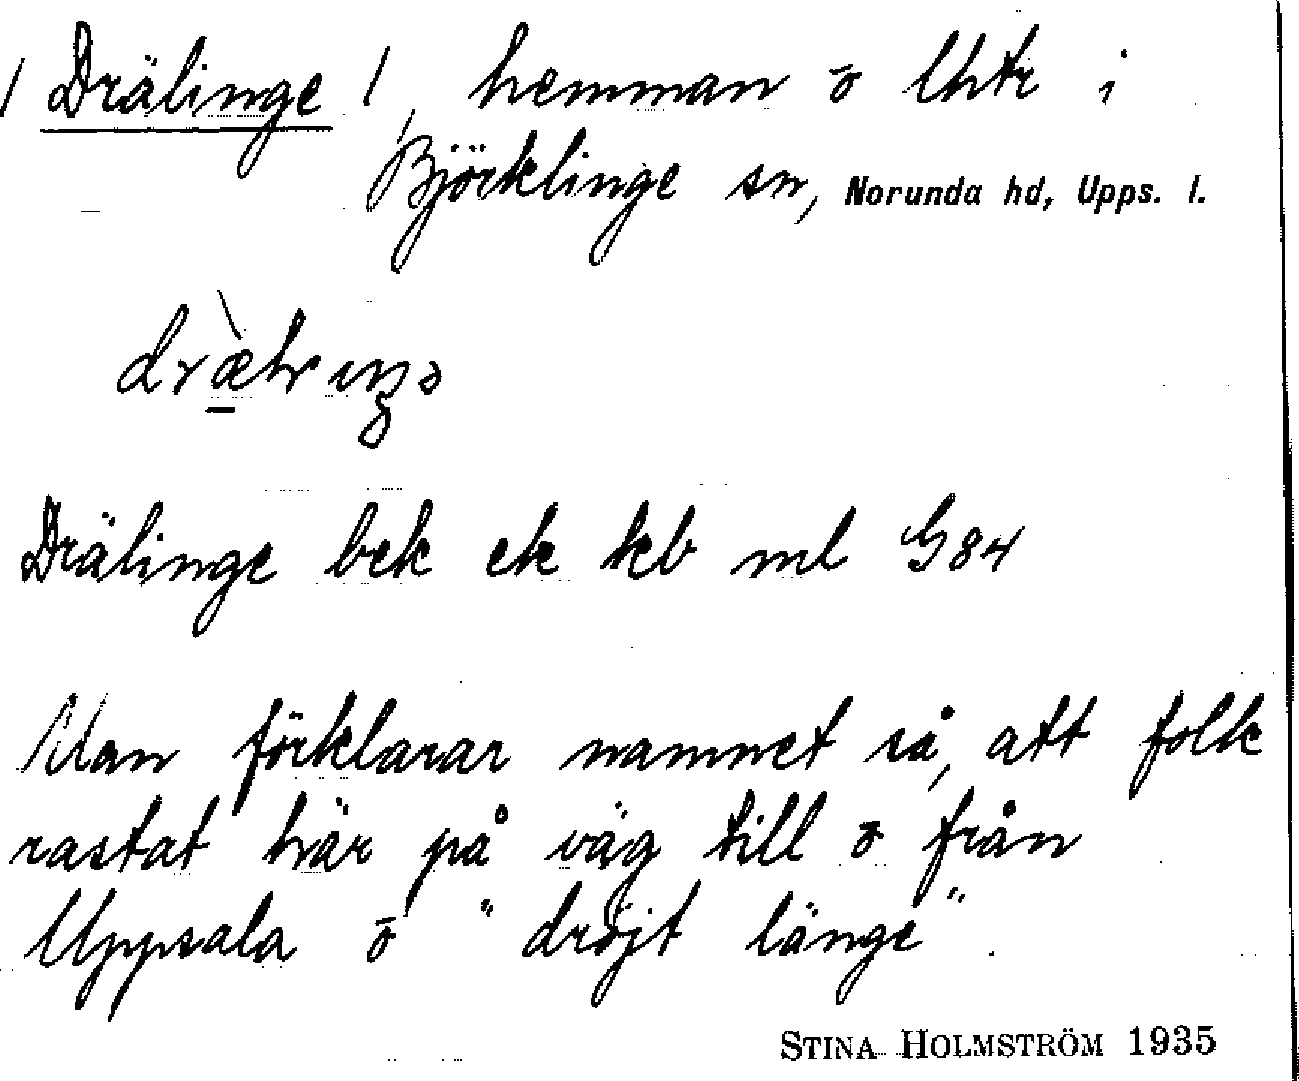 / Drälinge /, hemman ō lhtr i
Björklinge sn, Norunda hd, Upps. l.
Drälinge bek ek kb ml G84
Man förklarar namnet så, att folk
rastat här på väg till ō från
Uppsala ō "dröjt länge".
STINA HOLMSTRÖM 1935